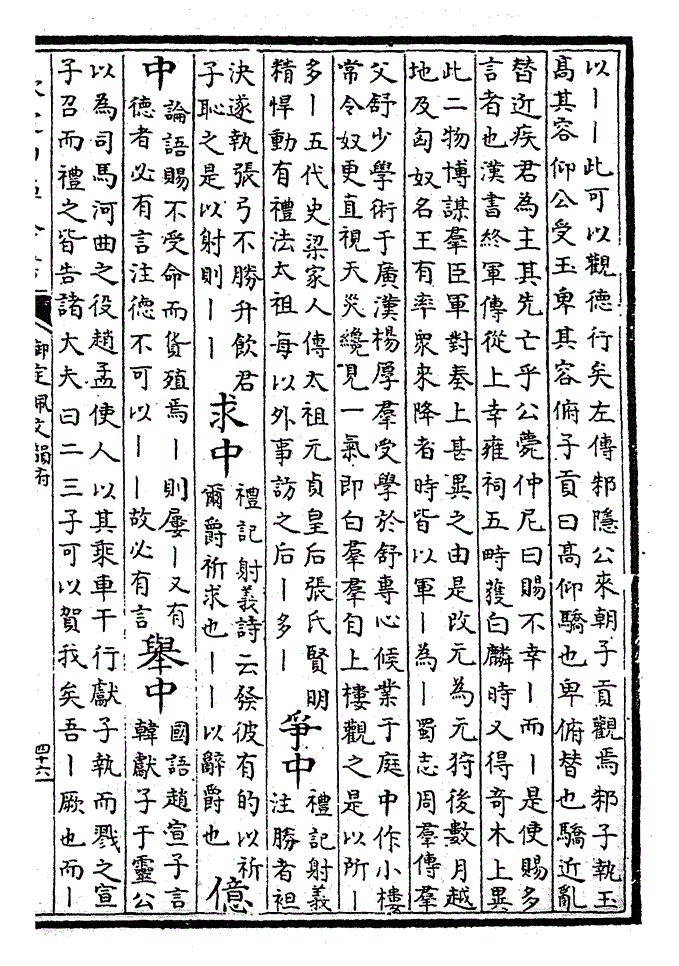 以——此可以觀德行矣左傳邾隱公來朝子貢觀焉邾子執玉
高其容仰公受玉卑其容俯子貢曰高仰驕也卑俯替也驕近亂
替近疾君為主其先亡乎公薨仲尼曰賜不幸—而—是使賜多
言者也漢書終軍傳從上幸雍祠五畤獲白麟時又得奇木上異
此二物博謀羣臣軍對奏上甚異之由是改元為元狩後數月越
地及匈奴名王有率衆来降者時皆以軍—為—蜀志周羣傳羣
父舒少學術于廣漢楊厚羣受學於舒專心候業于庭中作小樓
常令奴更直視天災纔見一氣即白羣羣自上樓觀之是以所—
多—五代史梁家人傳太祖元貞皇后張氏賢明
精悍動有禮法太祖每以外事訪之后—多—
爭中
禮記射義
注勝者袒
決遂執張弓不勝升飲君
子恥之是以射則——
求中
禮記射義詩云發彼有的以祈
爾爵祈求也——以辭爵也
億
中
論語賜不受命而貨殖焉—則屢—又有
德者必有言注德不可以——故必有言
舉中
國語趙宣子言
韓獻子于靈公
以為司馬河曲之役趙孟使人以其乘車干行獻子執而戮之宣
子召而禮之皆告諸大夫曰二三子可以賀我矣吾—厥也而—
御定佩文韻府
四十六